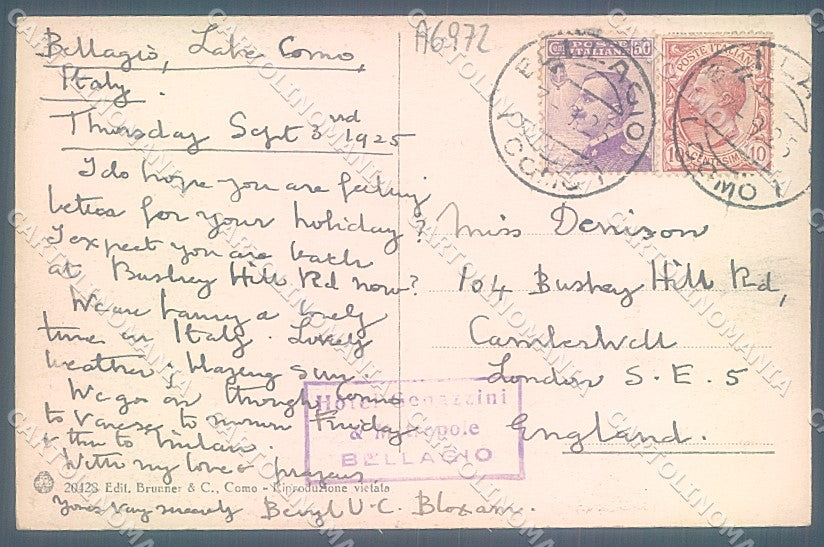 A6972
Bellagio, Lake Como,
Italy.
Thursday Sept 3rd 1925
I do hope you are feeling
better for your holiday?
I expect you are back
at Bushey Hill Rd now?
We are having a lovely
time in Italy. Lovely
weather & blazing sun.
We go on through Como
to Varese to morrow Friday
& then to Milan.
With my love & prayers
Yours very sincerely Beryl U.C. Bloxam.
POSTE ITALIANE 50
POSTE ITALIANE
10 CENTESIMI 10
BELLAGIO
(COMO)
(COMO)
Miss Denison
104 Bushey Hill Rd,
Camberwell
London S.E. 5
England.
Hotel Genazzini
& Metropole
BELLAGIO
20423 Edit. Brunner & C., Como - Riproduzione vietata
CARTOLINOMANIA